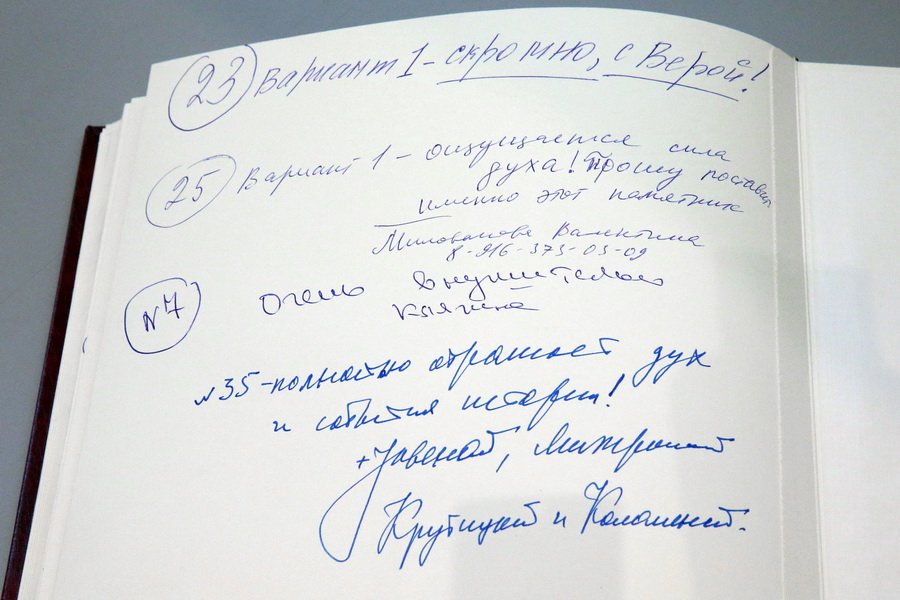 23 Вариант 1 - скромно, с Верой!
25 Вариант 1 - ощущается сила
духа! Прошу поставить
именно этот памятник
Милованова Валентина
8-916-373-03-09
№7 Очень внушительно
Калягина
№35 - полностью отражает дух
и события истории!
+ Ювеналий, Митрополит
Крутицкий и Коломенский.